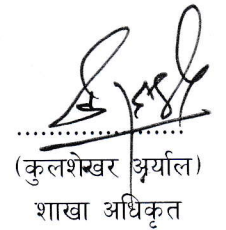 (कुलशेखर अर्याल)
शाखा अधिकृत